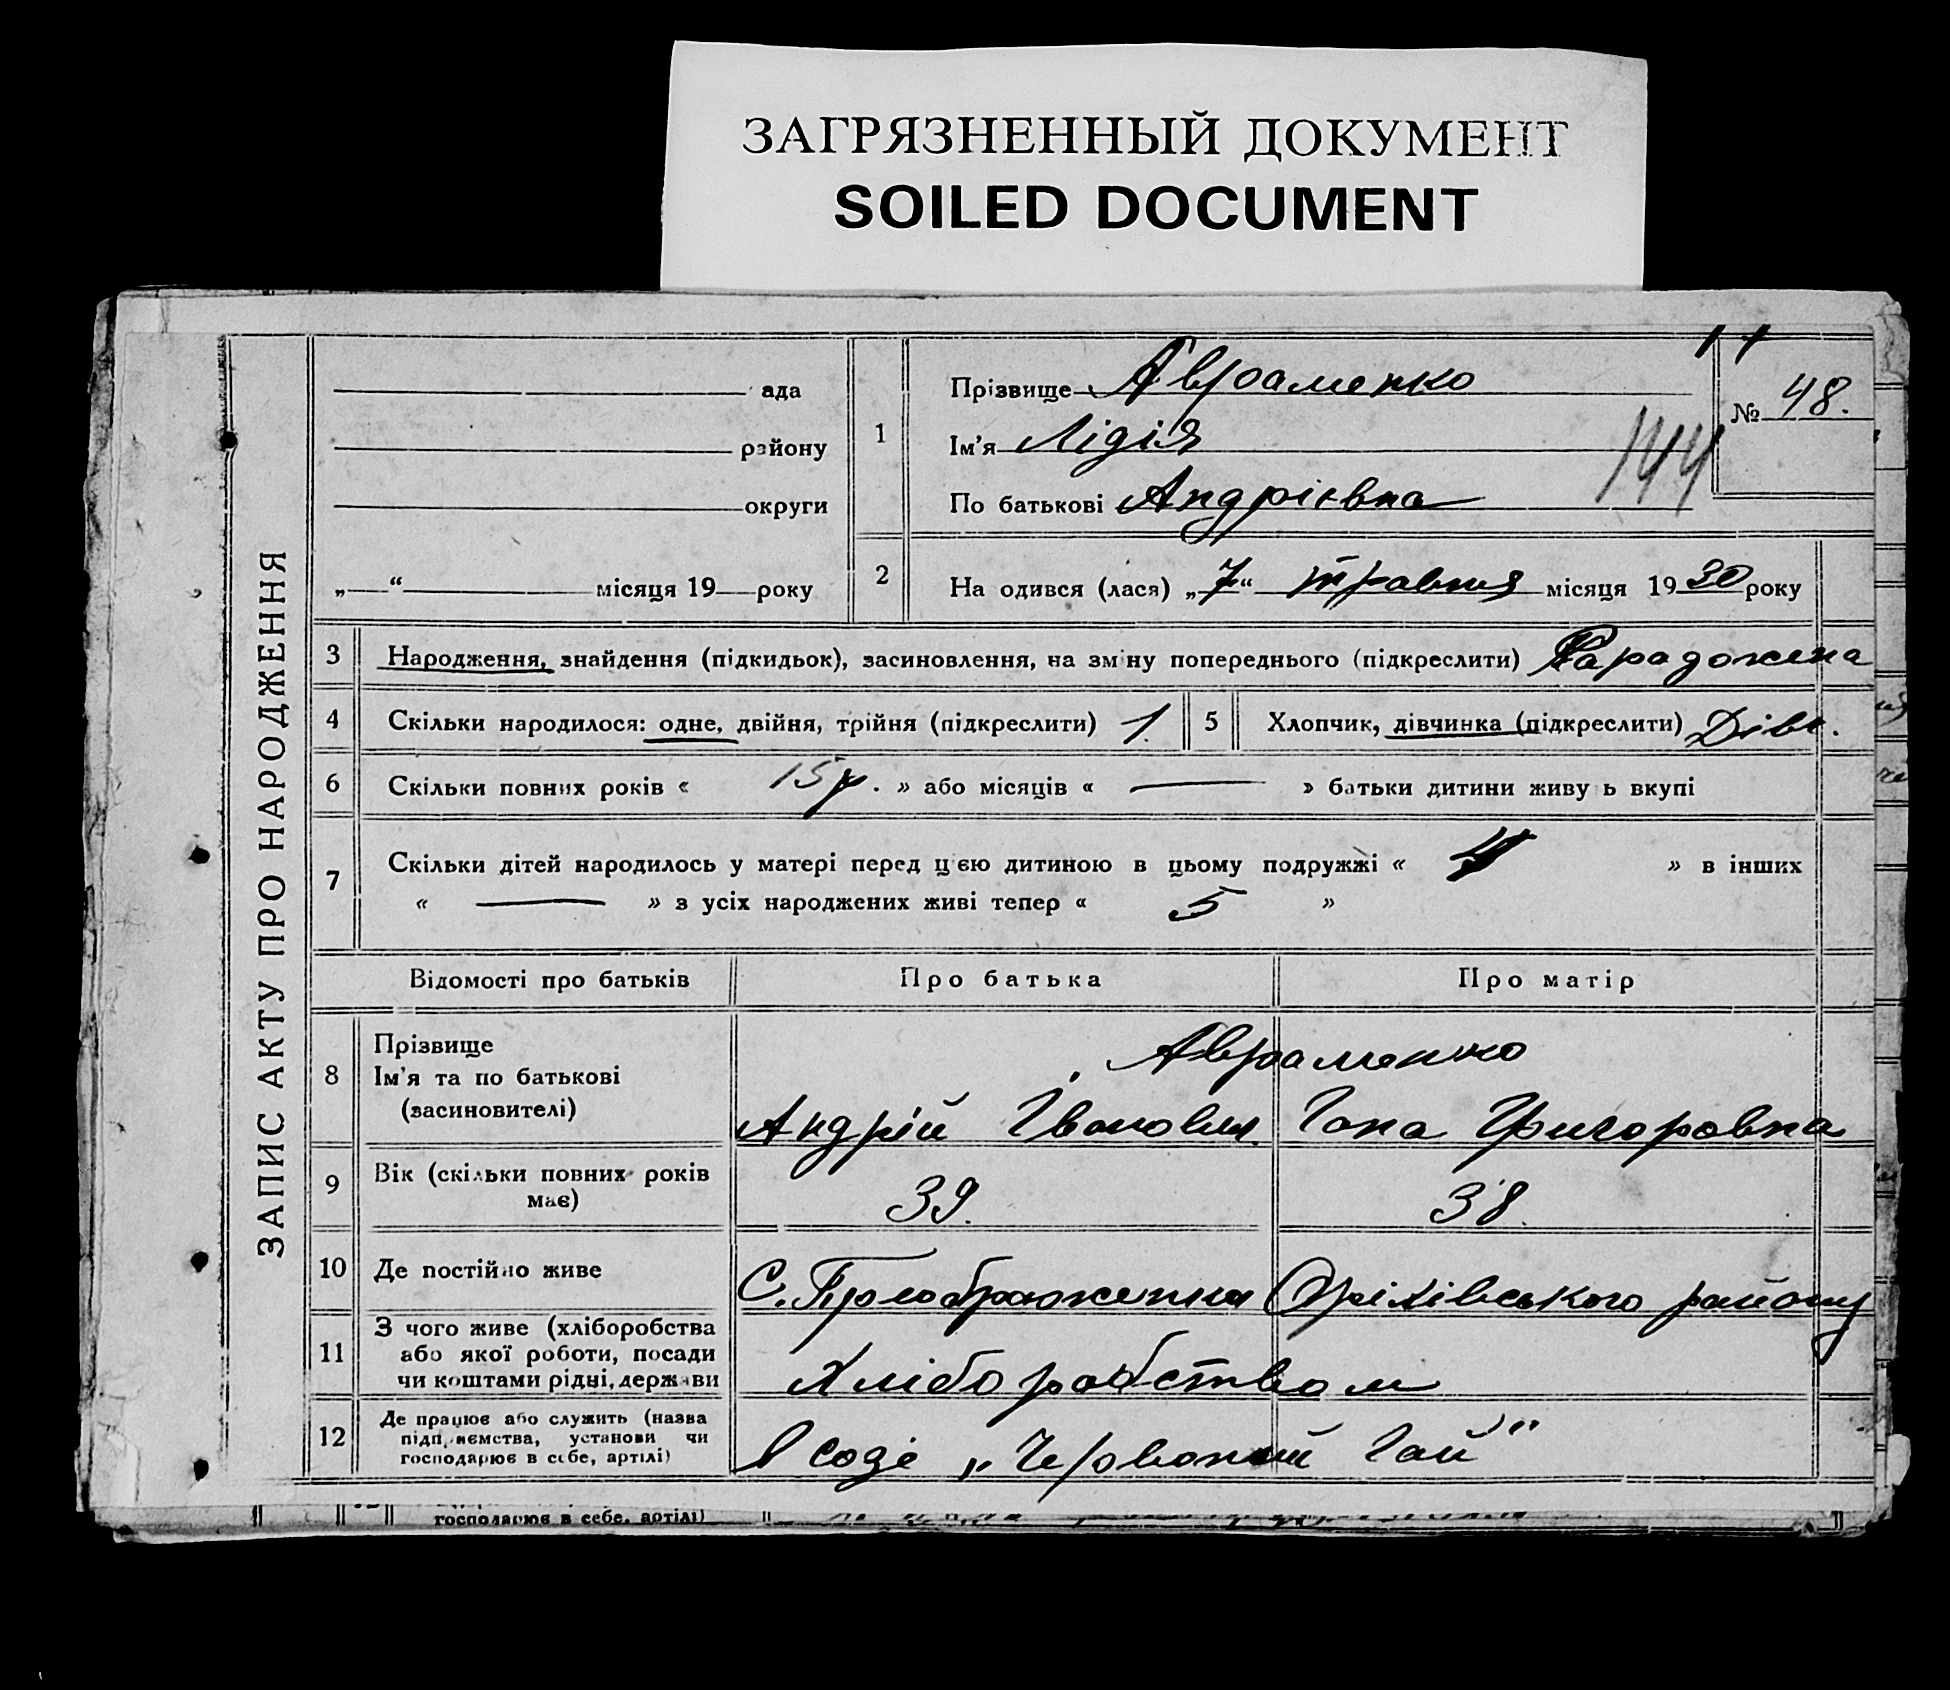 ЗАГРЯЗНЕННЫЙ ДОКУМЕНТ
SOILED DOCUMENT
ЗАПИС АКТУ ПРО НАРОДЖЕННЯ
ада
району
округи
„ “ місяця 19 року
1
Прізвище Авраменко
Ім'я Лідія
По батькові Андрієвна
№ 48.
144
2
На одився (лася) „7“ травня місяця 1930 року
3 Народження, знайдення (підкидьок), засиновлення, на зміну попереднього (підкреслити)
4 Скільки народилося: одне, двійня, трійня (підкреслити) 1.
5 Хлопчик, дівчинка (підкреслити) Дівч.
6 Скільки повних років « 15 р. » або місяців « — » батьки дитини живу ь вкупі
7 Скільки дітей народилось у матері перед цією дитиною в цьому подружжі « 4 » в інших
« — » з усіх народжених живі тепер « 5 »
Відомості про батьків Про батька Про матір
8 Прізвище
Ім'я та по батькові
(засиновителі)
Авраменко
Андрій Іванович Гана Григоровна
9 Вік (скільки повних років
має)
39. 38.
10 Де постійно живе С. Преображенка Оріхівського району
11 З чого живе (хліборобства
або якої роботи, посади
чи коштами рідні, держави
Хліборобством
12 Де працює або служить (назва
підприємства, установи чи
господарює в себе, артілі)
В созі „Червоний Гай"
господарює в себе, артілі)